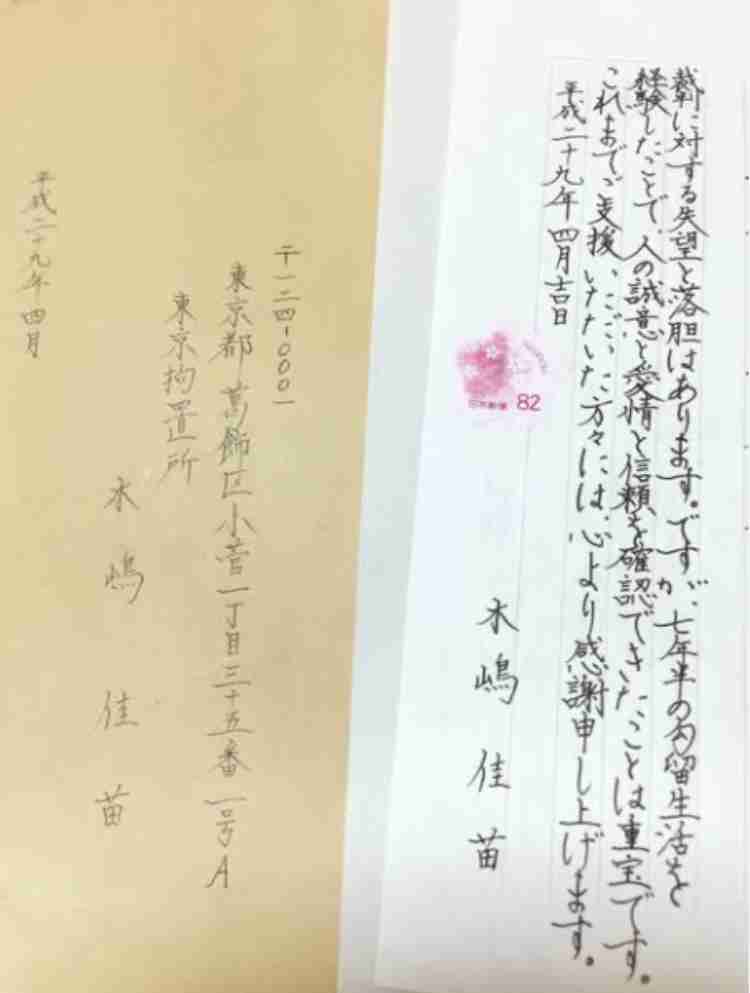 裁判に対する失望と落胆はあります。ですが、七年半の勾留生活を
経験したことで、人の誠意と愛情と信頼を確認できたことは重宝です。
これまでご支援いただいた方々には、心より感謝申し上げます。
平成二十九年四月吉日
木嶋佳苗
日本郵便 82
〒一二四-〇〇〇一
東京都葛飾区小菅一丁目三十五番一号A
東京拘置所
木嶋佳苗
平成二十九年四月